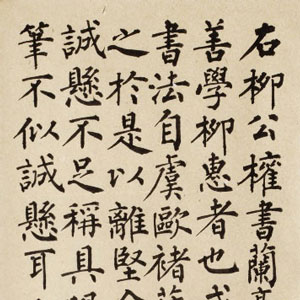 右柳公權書蘭
善學柳惠者也
書法自虞歐褚
之於是以離堅合
誠懸不足稱具
筆不似誠懸耳